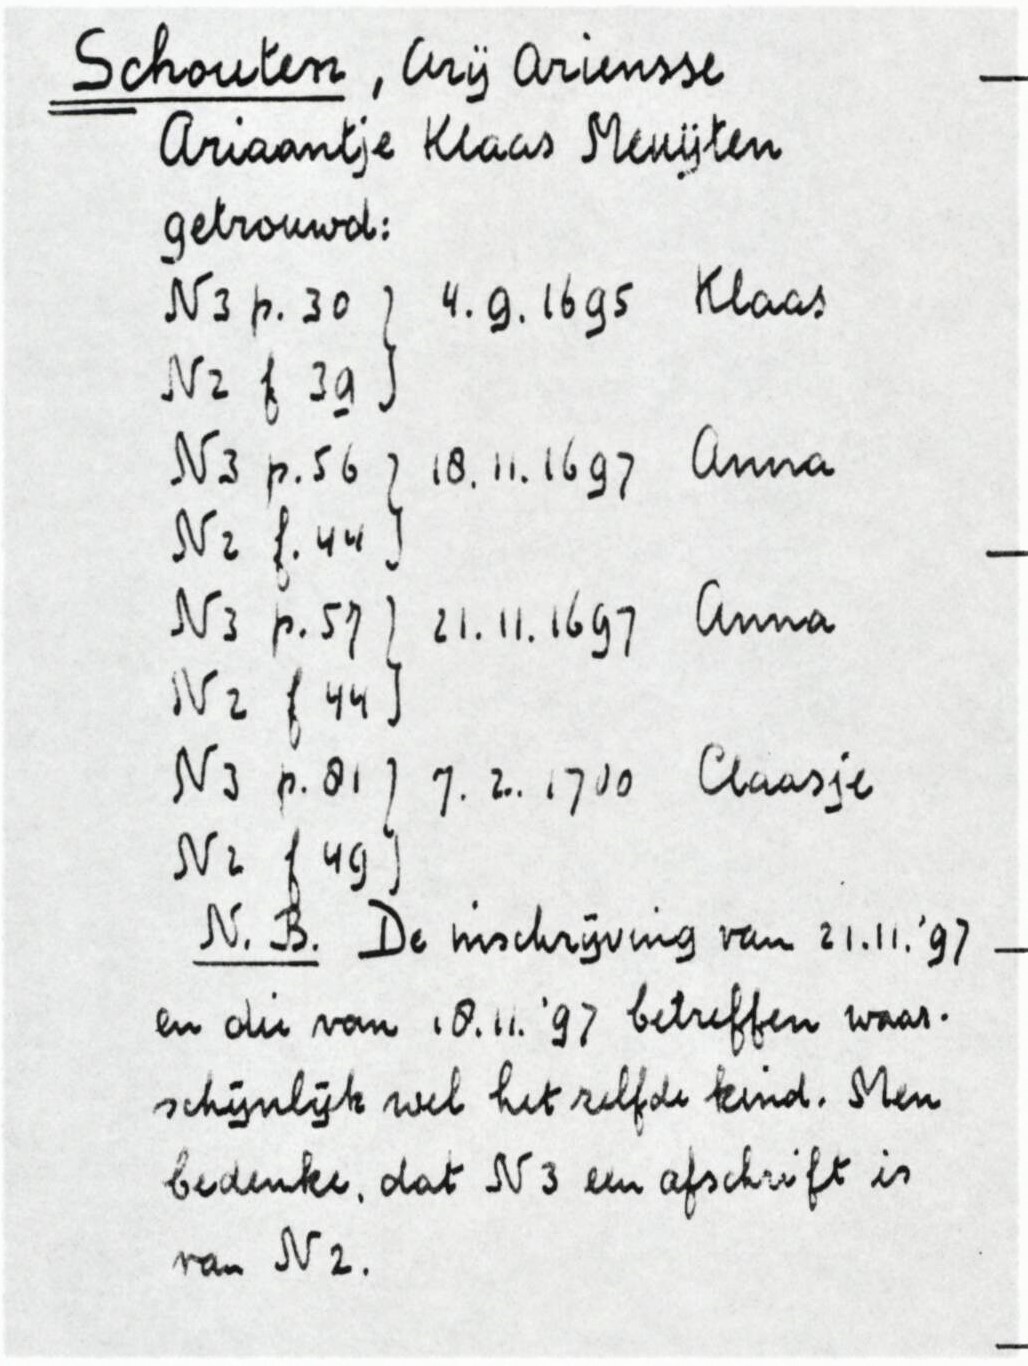 Schouten, Arij Ariensse
Ariaantje Klaas Meuijten
getrouwd:
N3 p. 30 } 4. 9. 1695 Klaas
N2 f 39
N3 p. 56 } 18. 11. 1697 Anna
N2 f. 44
N3 p. 57 } 21. 11. 1697 Anna
N2 f 44
N3 p. 81 } 7. 2. 1700 Claasje
N2 f 49
N.B. De inschrijving van 21.11.'97
en die van 18.11.'97 betreffen waar-
schijnlijk wel het zelfde kind. Men
bedenke, dat N3 een afschrift is
van N2.